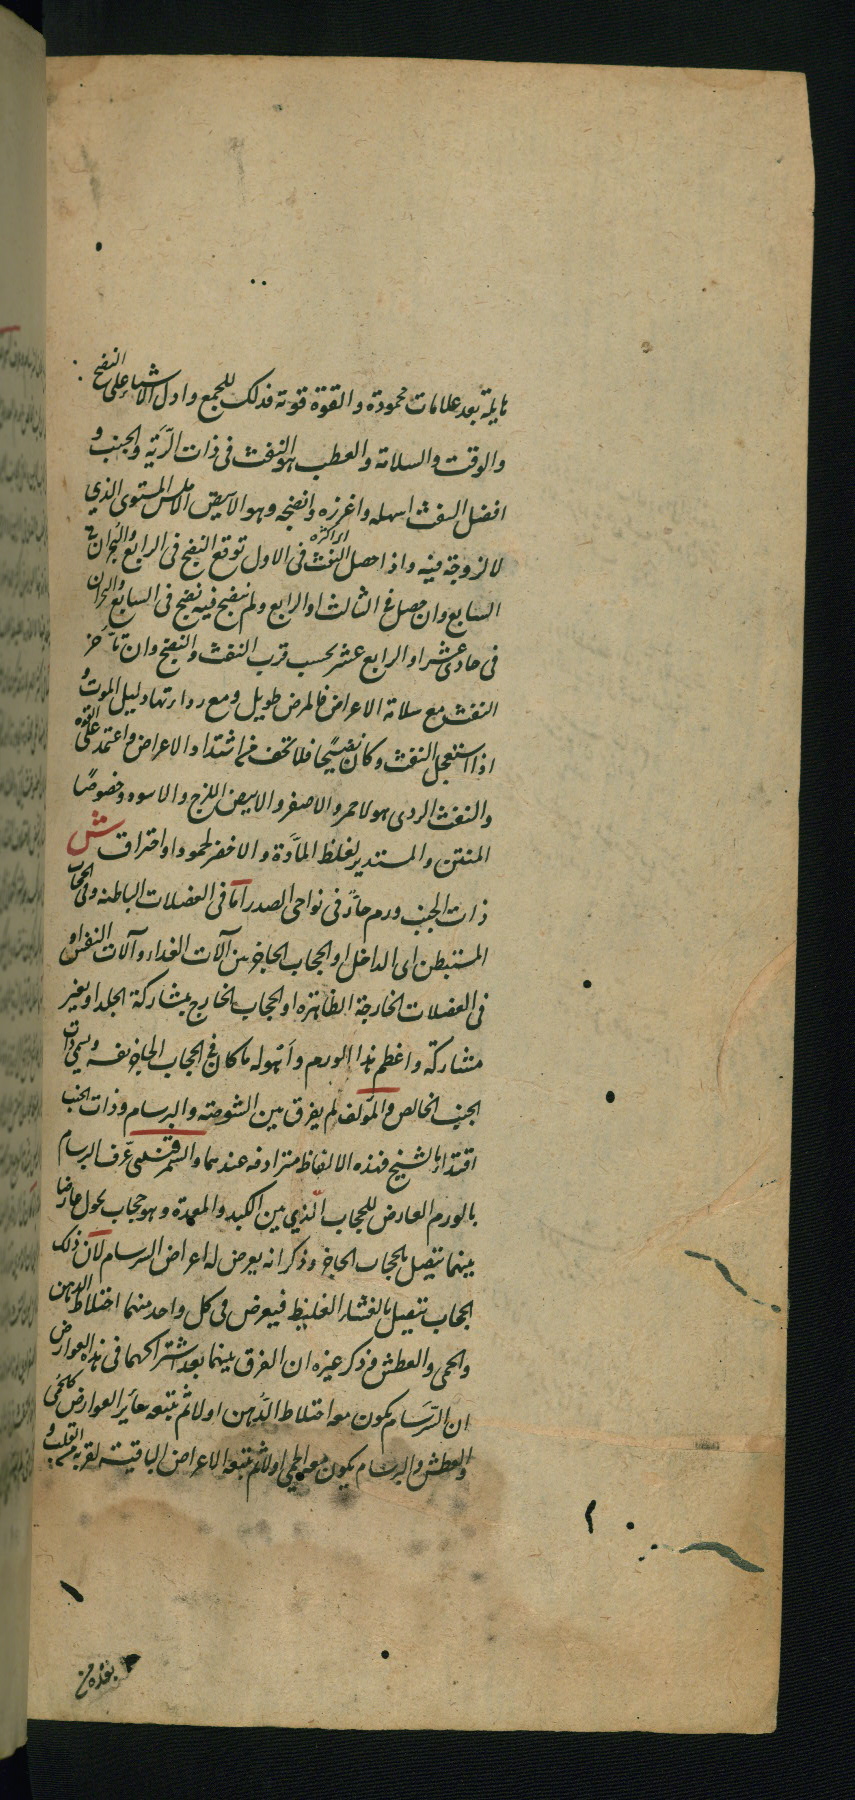 هايلة بعد علامات محمودة والقوة قوية فذلك للجمع وادل الاشياء على النضج
والوقت والسلامة والعطب هو النفث فى ذات الرية والجنب و
افضل النفث اسهله واغزره وانضجه وهو الابيض الاملس المستوى الذي
لا لزوجة فيه واذا حصل النفث فى الاول توقع النضج فى الرابع والبحران فى
السابع وان حصل فى الثالث او الرابع ولم ينضج فيه نضج فى السابع والبحران
فى حادى عشر او الرابع عشر بحسب قرب النفث والنضج وان تأخر
النفث مع سلامة الاعراض فالمرض طويل ومع رداءتها دليل الموت و
اذا استعجل النفث وكان نضيجًا فلا تخف من اشتداد الاعراض واعتمد على القوة
والنفث الردى هو الاحمر والاصفر والابيض اللزج والاسود وخصوصًا
المنتن والمستدير لغلظ المادّة والاخضر لجمود او احتراق ش
ذات الجنب ورم حادّ فى نواحى الصدر امّا فى العضلات الباطنه وفى الحجاب
المستبطن اى الداخل او الحجاب الحاجز بين آلات الغداء وآلات النفس او
فى العضلات الخارجة الظاهرة او الحجاب الخارج بمشاركة الجلد او بغير
مشاركة واعظم هذا الورم واهوله ما كان فى الحجاب الحاجز نفسه ويسمى ذات
الجنب الخالص والمؤلف لم يفرق بين الشوصة والبرسام وذات الجنب
اقتداء بالشيخ فهذه الالفاظ مترادفه عندهما والسمرقندى عرف البرسام
بالورم العارض للحجاب الّذي بين الكبد والمعدة وهو حجاب يحول عارضا
بينهما يتصل بالحجاب الحاجز وذكر انه يعرض له اعراض السرسام لان ذلك
الحجاب يتصل بالغشاء الغليظ فيعرض فى كل واحد منهما اختلاط الذهن
والحمى والعطش وذكر غيره ان الفرق بينهما بعد اشتراكهما فى هذه العوارض
ان السّرسام يكون معه اختلاط الذّهن اولا ثم يتبعه سائر العوارض كالحمى
والعطش والبرسام يكون معه الحمى اولا ثم يتبعه الاعراض الباقية لقربه من القلب و